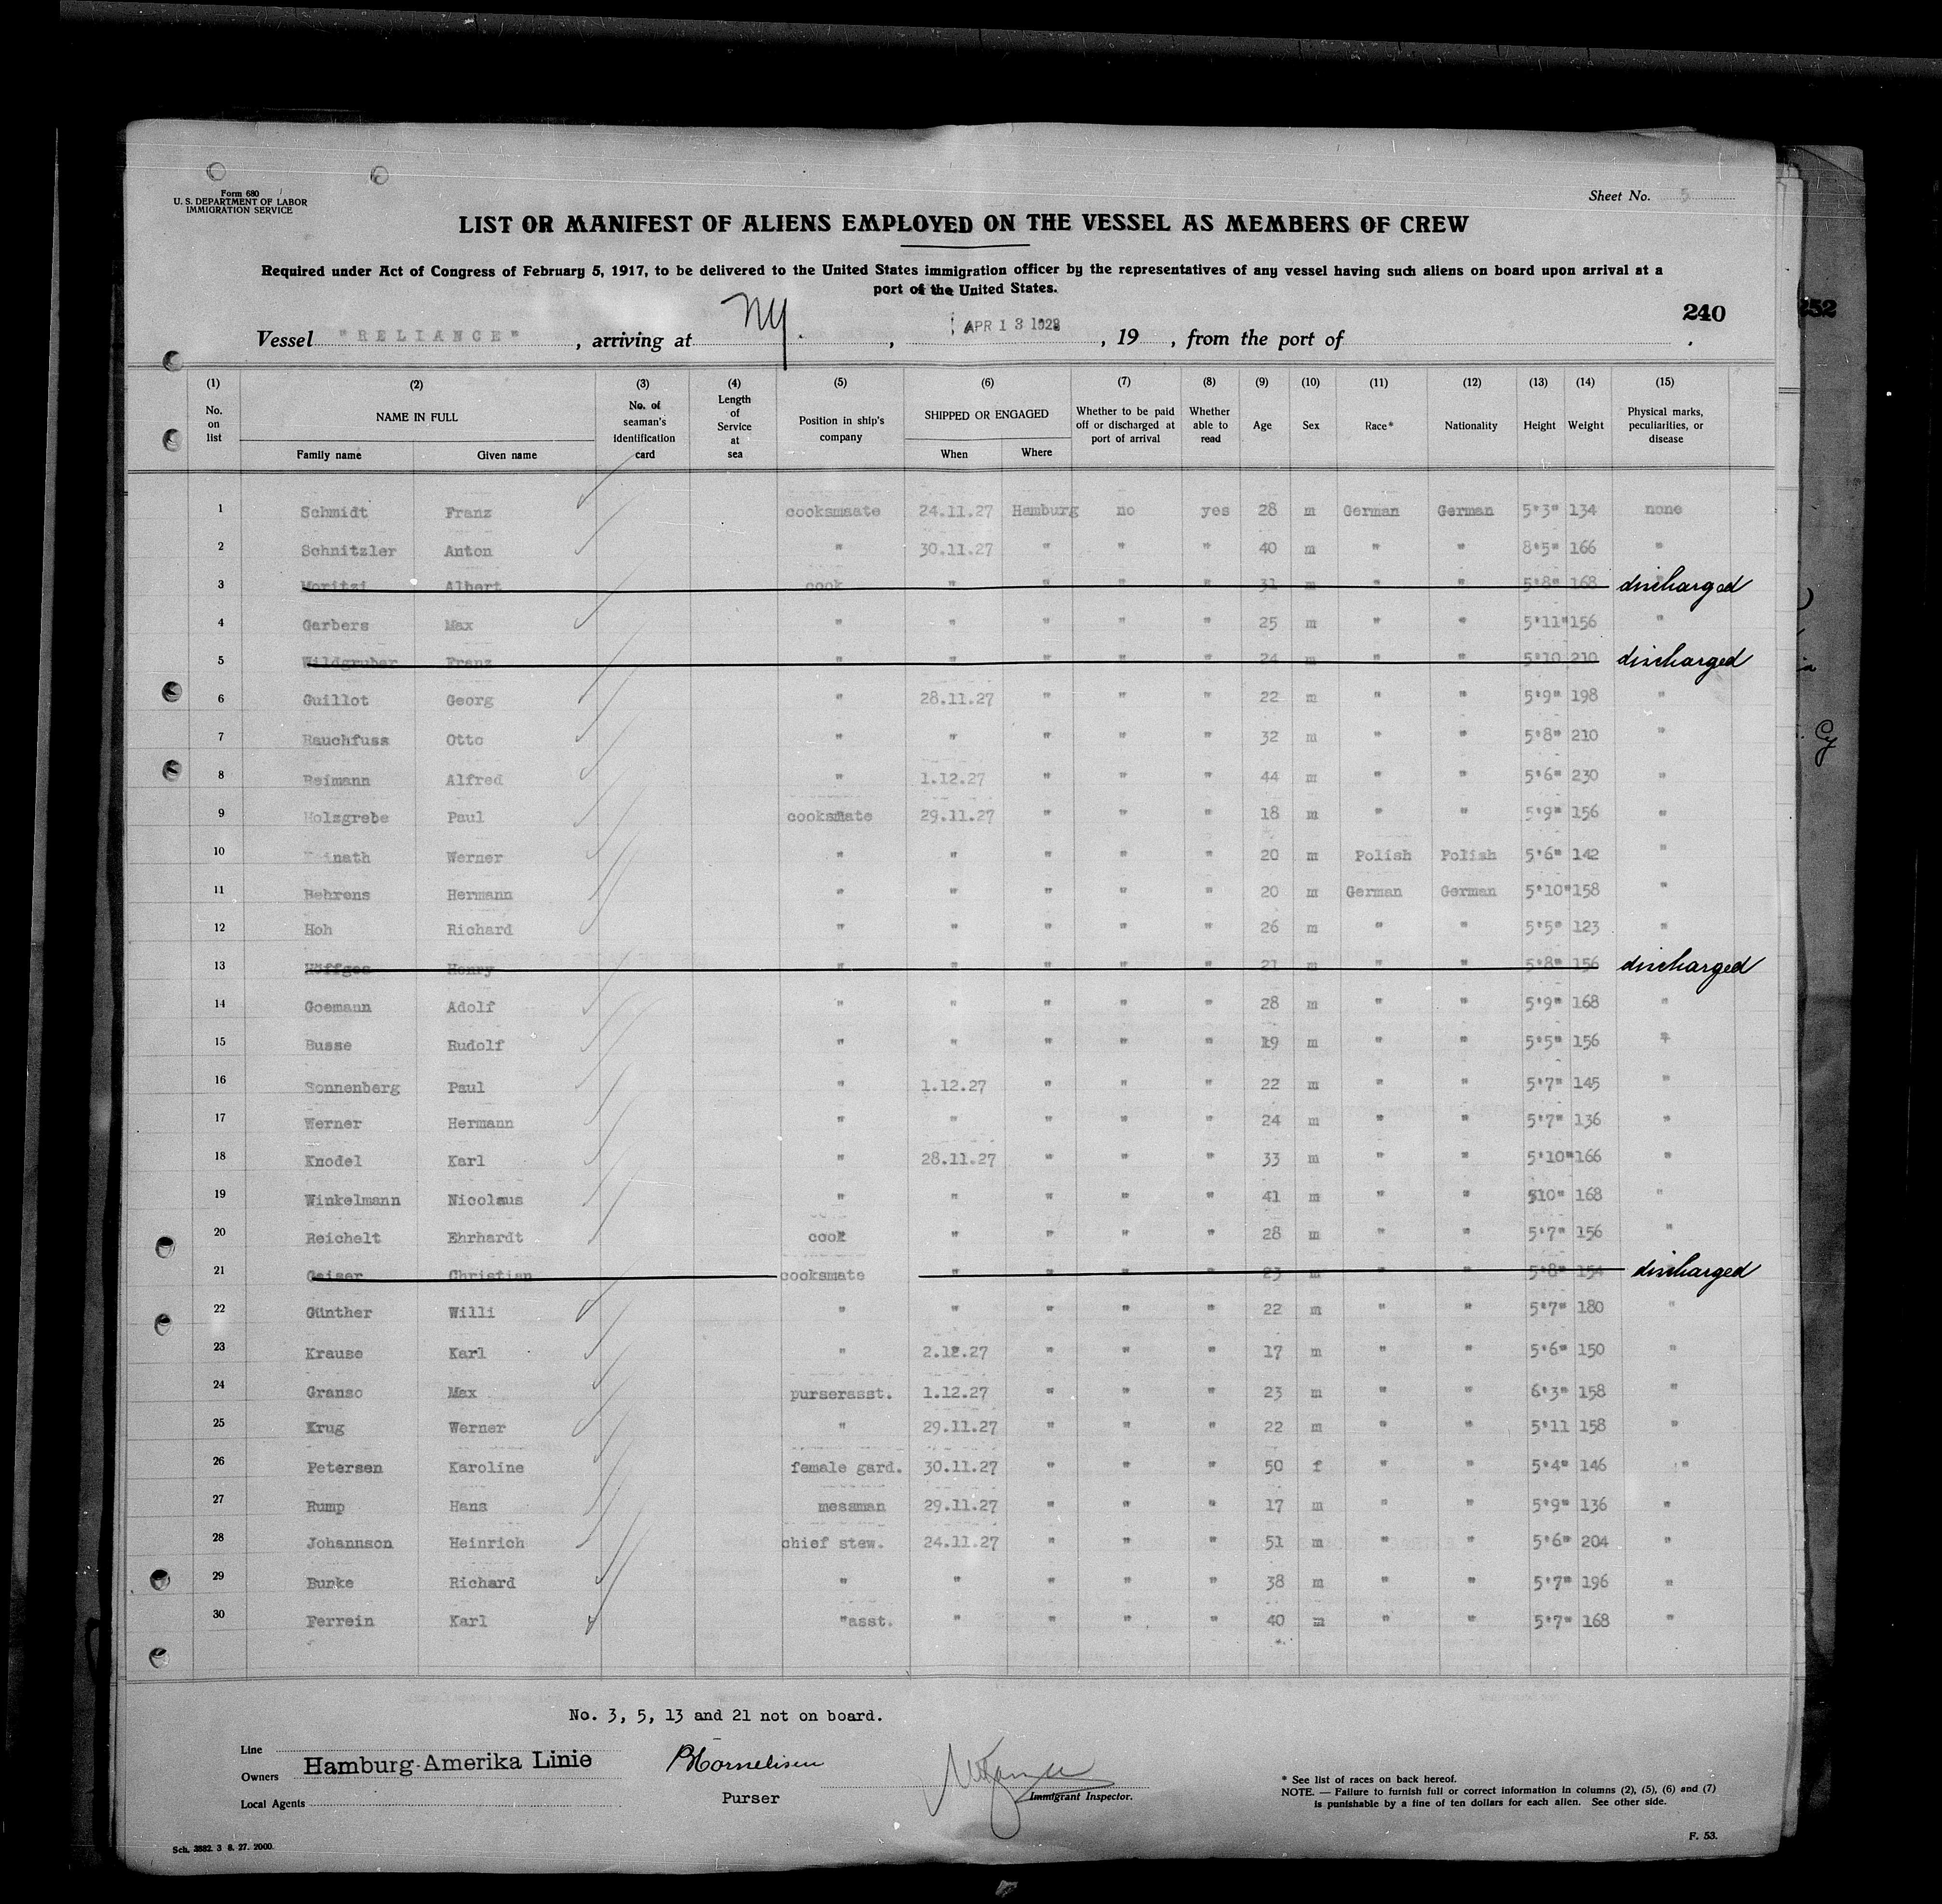 Form 680
U. S. DEPARTMENT OF LABOR
IMMIGRATION SERVICE
Sheet No. 5
LIST OR MANIFEST OF ALIENS EMPLOYED ON THE VESSEL AS MEMBERS OF CREW
Required under Act of Congress of February 5, 1917, to be delivered to the United States immigration officer by the representatives of any vessel having such aliens on board upon arrival at a
port of the United States.
240
252
Vessel "RELIANCE" , arriving at NY. , APR 13 1928 , 19 , from the port of .
(1) (2) (3) (4) (5) (6) (7) (8) (9) (10) (11) (12) (13) (14) (15)
No. on list NAME IN FULL No. of seaman's identification card Length of Service at sea Position in ship's company SHIPPED OR ENGAGED Whether to be paid off or discharged at port of arrival Whether able to read Age Sex Race* Nationality Height Weight Physical marks, peculiarities, or disease
Family name Given name When Where
1 Schmidt Franz cooksmaate 24.11.27 Hamburg no yes 28 m German German 5'3" 134 none
2 Schnitzler Anton " 30.11.27 " " " 40 m " " 8'5" 166 "
3 Moritzi Albert cook " " " " 31 m " " 5'8" 168 discharged
4 Garbers Max " " " " " 25 m " " 5'11" 156 "
5 Wildgruber Franz " " " " " 24 m " " 5'10 210 discharged
6 Guillot Georg " 28.11.27 " " " 22 m " " 5'9" 198 "
7 Rauchfuss Otto " " " " " 32 m " " 5'8" 210 "
8 Reimann Alfred " 1.12.27 " " " 44 m " " 5'6" 230 "
9 Holzgrebe Paul cooksmate 29.11.27 " " " 18 m " " 5'9" 156 "
10 Werner " " " " " 20 m Polish Polish 5'6" 142 "
11 Behrens Hermann " " " " " 20 m German German 5'10" 158 "
12 Hoh Richard " " " " " 26 m " " 5'5" 123 "
13 Höffges Henry " " " " " 21 m " " 5'8" 156 discharged
14 Goemann Adolf " " " " " 28 m " " 5'9" 168 "
15 Busse Rudolf " " " " " 19 m " " 5'5" 156 "
16 Sonnenberg Paul " 1.12.27 " " " 22 m " " 5'7" 145 "
17 Werner Hermann " " " " " 24 m " " 5'7" 136 "
18 Knodel Karl " 28.11.27 " " " 33 m " " 5'10" 166 "
19 Winkelmann Nicolaus " " " " " 41 m " " 510" 168 "
20 Reichelt Ehrhardt cook " " " " 28 m " " 5'7" 156 "
21 Geiser Christian cooksmate " " " " 23 m " " 5'8" 154 discharged
22 Günther Willi " " " " " 22 m " " 5'7" 180 "
23 Krause Karl " 2.12.27 " " " 17 m " " 5'6" 150 "
24 Granso Max purserasst. 1.12.27 " " " 23 m " " 6'3" 158 "
25 Krug Werner " 29.11.27 " " " 22 m " " 5'11 158 "
26 Petersen Karoline female gard. 30.11.27 " " " 50 f " " 5'4" 146 "
27 Rump Hans messman 29.11.27 " " " 17 m " " 5'9" 136 "
28 Johannson Heinrich chief stew. 24.11.27 " " " 51 m " " 5'6" 204 "
29 Bunke Richard " " " " " 38 m " " 5'7" 196 "
30 Ferrein Karl "asst. " " " " 40 m " " 5'7" 168 "
No. 3, 5, 13 and 21 not on board.
Line
Owners Hamburg-Amerika Linie
Local Agents
Purser
Immigrant Inspector.
* See list of races on back hereof.
NOTE. — Failure to furnish full or correct information in columns (2), (5), (6) and (7)
is punishable by a fine of ten dollars for each alien. See other side.
Sch. 2882. 3 8. 27. 2000.
F. 53.